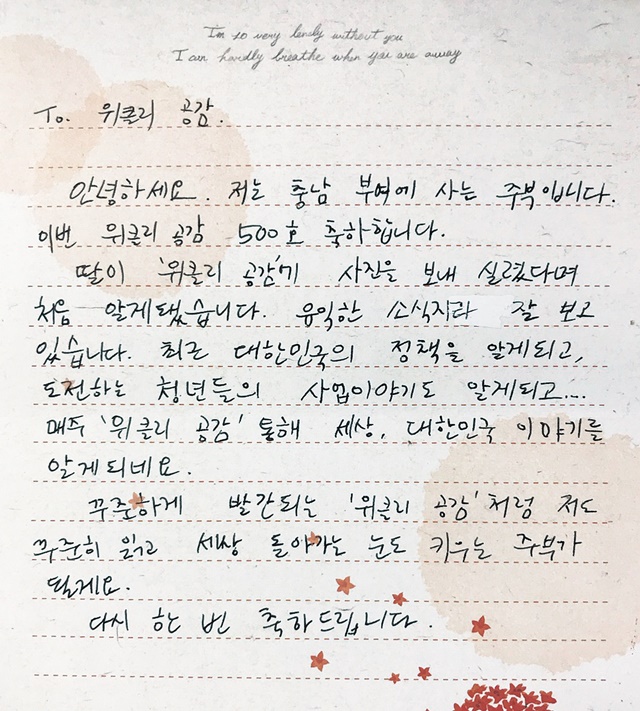 I'm so very lonely without you
I can hardly breathe when you are away
To. 위클리 공감.
안녕하세요. 저는 충남 부여에 사는 주부입니다.
이번 위클리 공감 500호 축하합니다.
딸이 '위클리 공감'에 사진을 보내 실렸다며
처음 알게됐습니다. 유익한 소식지라 잘 보고
있습니다. 최근 대한민국의 정책을 알게되고,
도전하는 청년들의 사업이야기도 알게되고...
매주 '위클리 공감' 통해 세상, 대한민국 이야기를
알게되네요.
꾸준하게 발간되는 '위클리 공감'처럼 저도
꾸준히 읽고 세상 돌아가는 눈도 키우는 주부가
될게요.
다시 한 번 축하드립니다.